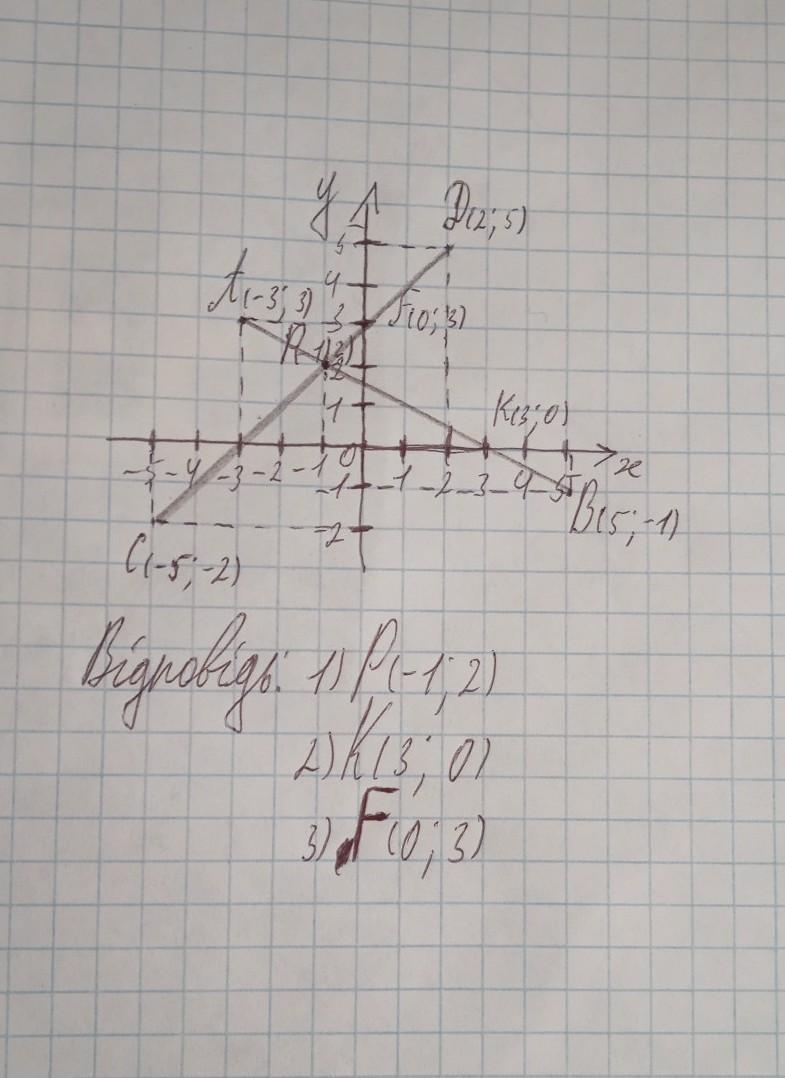 y
D(2; 5)
5
A(-3; 3)
4
3
F(0; 3)
P(-1; 2)
2
1
K(3; 0)
-5 -4 -3 -2 -1 0 -1 -2 -3 -4 -5 x
-1
B(5; -1)
-2
C(-5; -2)
Відповідь: 1) P(-1; 2)
2) K(3; 0)
3) F(0; 3)